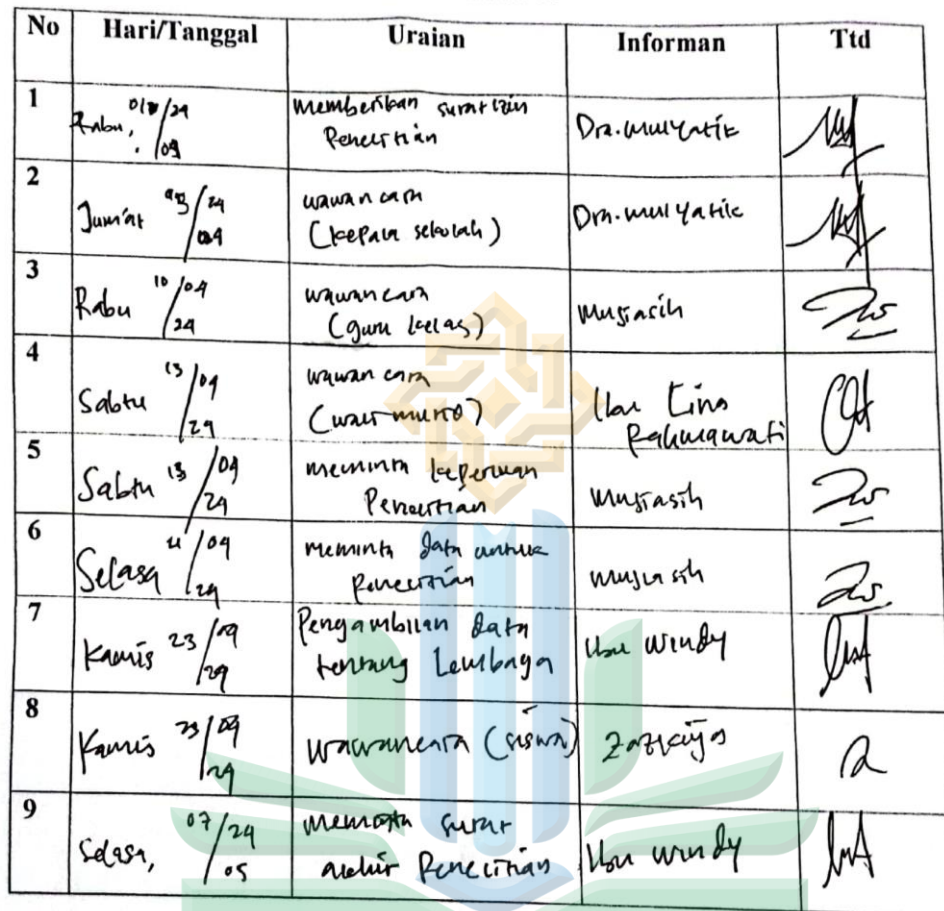 No Hari/Tanggal Uraian Informan Ttd
1
Rabu, /24
memberikan surat izin
Penelitian
Dra. Mulyatik
2
Jum'at /24
wawancara
(kepala sekolah)
Dra. Mulyatik
3
Rabu 10/04
24
wawancara
(guru kelas)
Mujiasih
4
Sabtu 13/04
24
wawancara
(wali murid)
Ibu
Rahmawati
5
Sabtu 13/04
24
meminta keperluan
Penelitian
Mujiasih
6
Selasa /04
24
meminta data untuk
Penelitian
Mujiasih
7
Kamis 23/
24
Pengambilan data
tentang Lembaga
Ibu Windy
8
Kamis 23/
24
wawancara (siswa)
9
Selasa, 07/24
05
meminta surat
akhir Penelitian
Ibu Windy